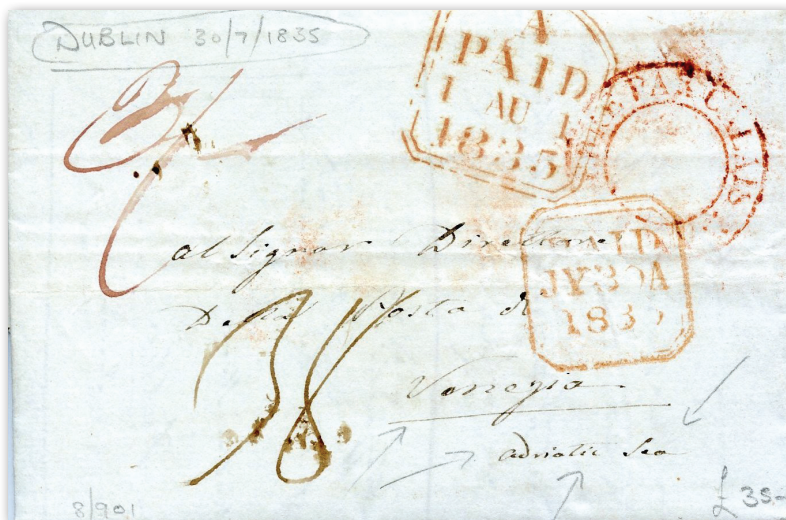 DUBLIN 30/7/1835
A
PAID
1 AU 1
1835
PAR CALAIS
PAID
JY 30 A
1835
al Signor Direttore
Della Posta di
Venezia
adriatic Sea
38
8/901
£ 35.-